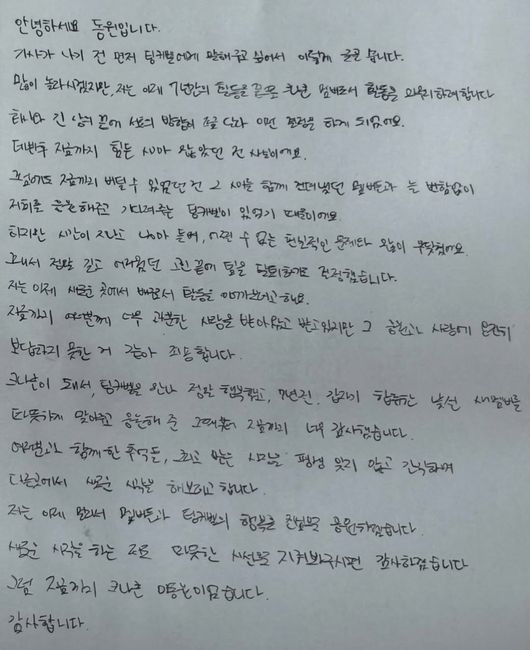 안녕하세요 동원입니다.
기사가 나기 전 먼저 팅커벨에게 말해주고 싶어서 이렇게 글을 씁니다.
많이 놀라시겠지만, 저는 이제 7년간의 활동을 끝으로 크나큰 멤버로서 활동을 마무리하려합니다
회사와 긴 상의 끝에 서로의 방향이 조금 달라 이런 결정을 하게 되었어요.
데뷔후 지금까지 힘든 시간이 많았던 건 사실이에요.
그럼에도 지금까지 버틸 수 있었던 건 그 시간을 함께 견뎌냈던 멤버들과 늘 변함없이
저희를 응원해주고 기다려주는 팅커벨이 있었기 때문이에요.
하지만 시간이 지나고 나이가 들며, 어쩔 수 없는 현실적인 문제와 많이 부딪쳤어요.
그래서 정말 길고 어려웠던 고민 끝에 팀을 탈퇴하기로 결정했습니다.
저는 이제 새로운 곳에서 배우로서 활동을 이어가보려고 해요.
지금까지 여러분께 너무 과분한 사랑을 받아왔고 받고있지만 그 응원과 사랑에 온전히
보답하지 못한 거 같아 죄송합니다.
크나큰이 돼서, 팅커벨을 만나 정말 행복했고, 7년전, 갑자기 합류한 낯선 새멤버를
따뜻하게 맞아주고 응원해 준 그때부터 지금까지 너무 감사했습니다.
여러분과 함께한 추억들, 그리고 받은 사랑을 평생 잊지 않고 간직하며
다른곳에서 새로운 시작을 해보려고 합니다.
저는 이제 멀리서 멤버들과 팅커벨의 행복을 진심으로 응원하겠습니다.
새로운 시작을 하는 저도 따뜻한 시선으로 지켜봐주시면 감사하겠습니다
그럼 지금까지 크나큰 이동원이었습니다.
감사합니다.